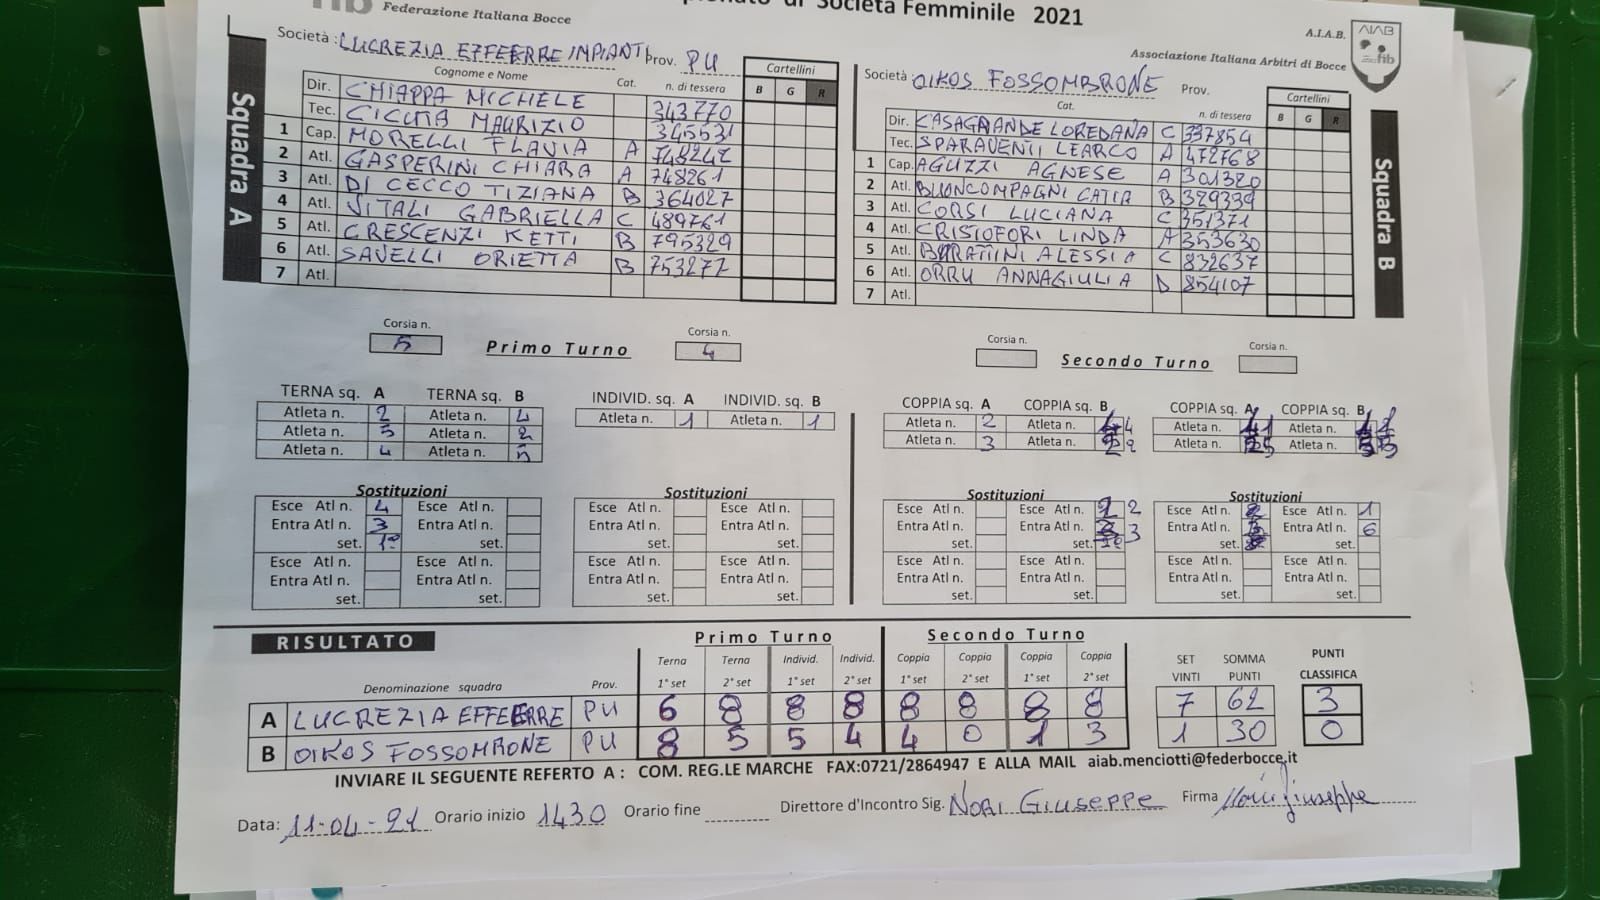 Federazione Italiana Bocce
di Società Femminile 2021
A.I.A.B.
Associazione Italiana Arbitri di Bocce
AIAB
fib
Squadra A
Società : LUCREZIA EFFEERRE IMPIANTI Prov. PU
Cognome e Nome Cat. n. di tessera Cartellini
B G R
Dir. CHIAPPA MICHELE 343770
Tec. CICUTA MAURIZIO 345531
1 Cap. MORELLI FLAVIA A 748242
2 Atl. GASPERINI CHIARA A 748261
3 Atl. DI CECCO TIZIANA B 364027
4 Atl. VITALI GABRIELLA C 489761
5 Atl. CRESCENZI KETTI B 795329
6 Atl. SAVELLI ORIETTA B 753277
7 Atl.
Squadra B
Società : OIKOS FOSSOMBRONE Prov.
Cat. n. di tessera Cartellini
B G R
Dir. CASAGRANDE LOREDANA C 337854
Tec. SPARAVENTI LEARCO A 472768
1 Cap. AGUZZI AGNESE A 301320
2 Atl. BUONCOMPAGNI CATIA B 329339
3 Atl. CORSI LUCIANA C 351371
4 Atl. CRISTOFORI LINDA A 353630
5 Atl. BURATTINI ALESSIA C 832637
6 Atl. ORRU ANNAGIULIA D 854107
7 Atl.
Corsia n. Corsia n. Corsia n. Corsia n.
5 Primo Turno 4 Secondo Turno
TERNA sq. A TERNA sq. B
Atleta n. 2 Atleta n. 4
Atleta n. 5 Atleta n. 2
Atleta n. 4 Atleta n. 5
INDIVID. sq. A INDIVID. sq. B
Atleta n. 1 Atleta n. 1
COPPIA sq. A COPPIA sq. B
Atleta n. 2 Atleta n. 4
Atleta n. 3 Atleta n. 2
COPPIA sq. A COPPIA sq. B
Atleta n. 1 Atleta n. 1
Atleta n. 5 Atleta n. 5
Sostituzioni
Esce Atl n. 4 Esce Atl n.
Entra Atl n. 3 Entra Atl n.
set. 1° set.
Esce Atl n. Esce Atl n.
Entra Atl n. Entra Atl n.
set. set.
Sostituzioni
Esce Atl n. Esce Atl n.
Entra Atl n. Entra Atl n.
set. set.
Esce Atl n. Esce Atl n.
Entra Atl n. Entra Atl n.
set. set.
Sostituzioni
Esce Atl n. Esce Atl n. 2
Entra Atl n. Entra Atl n. 3
set. set. 1°
Esce Atl n. Esce Atl n.
Entra Atl n. Entra Atl n.
set. set.
Sostituzioni
Esce Atl n. Esce Atl n. 1
Entra Atl n. Entra Atl n. 6
set. set.
Esce Atl n. Esce Atl n.
Entra Atl n. Entra Atl n.
set. set.
RISULTATO Primo Turno Secondo Turno
Terna Terna Individ. Individ. Coppia Coppia Coppia Coppia SET SOMMA PUNTI
Denominazione squadra Prov. 1° set 2° set 1° set 2° set 1° set 2° set 1° set 2° set VINTI PUNTI CLASSIFICA
A LUCREZIA EFFEERRE PU 6 8 8 8 8 8 8 8 7 62 3
B OIKOS FOSSOMRONE PU 8 5 5 4 4 0 1 3 1 30 0
INVIARE IL SEGUENTE REFERTO A : COM. REG.LE MARCHE FAX:0721/2864947 E ALLA MAIL aiab.menciotti@federbocce.it
Data: 11-04-21 Orario inizio 1430 Orario fine Direttore d'Incontro Sig. NORI GIUSEPPE Firma Nori Giuseppe